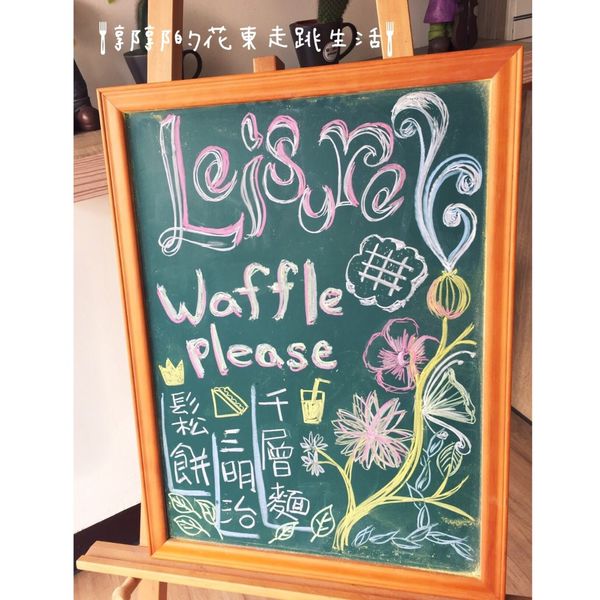 郭郭的花東走跳生活
Leisure
Waffle
please
鬆餅
三明治
千層麵